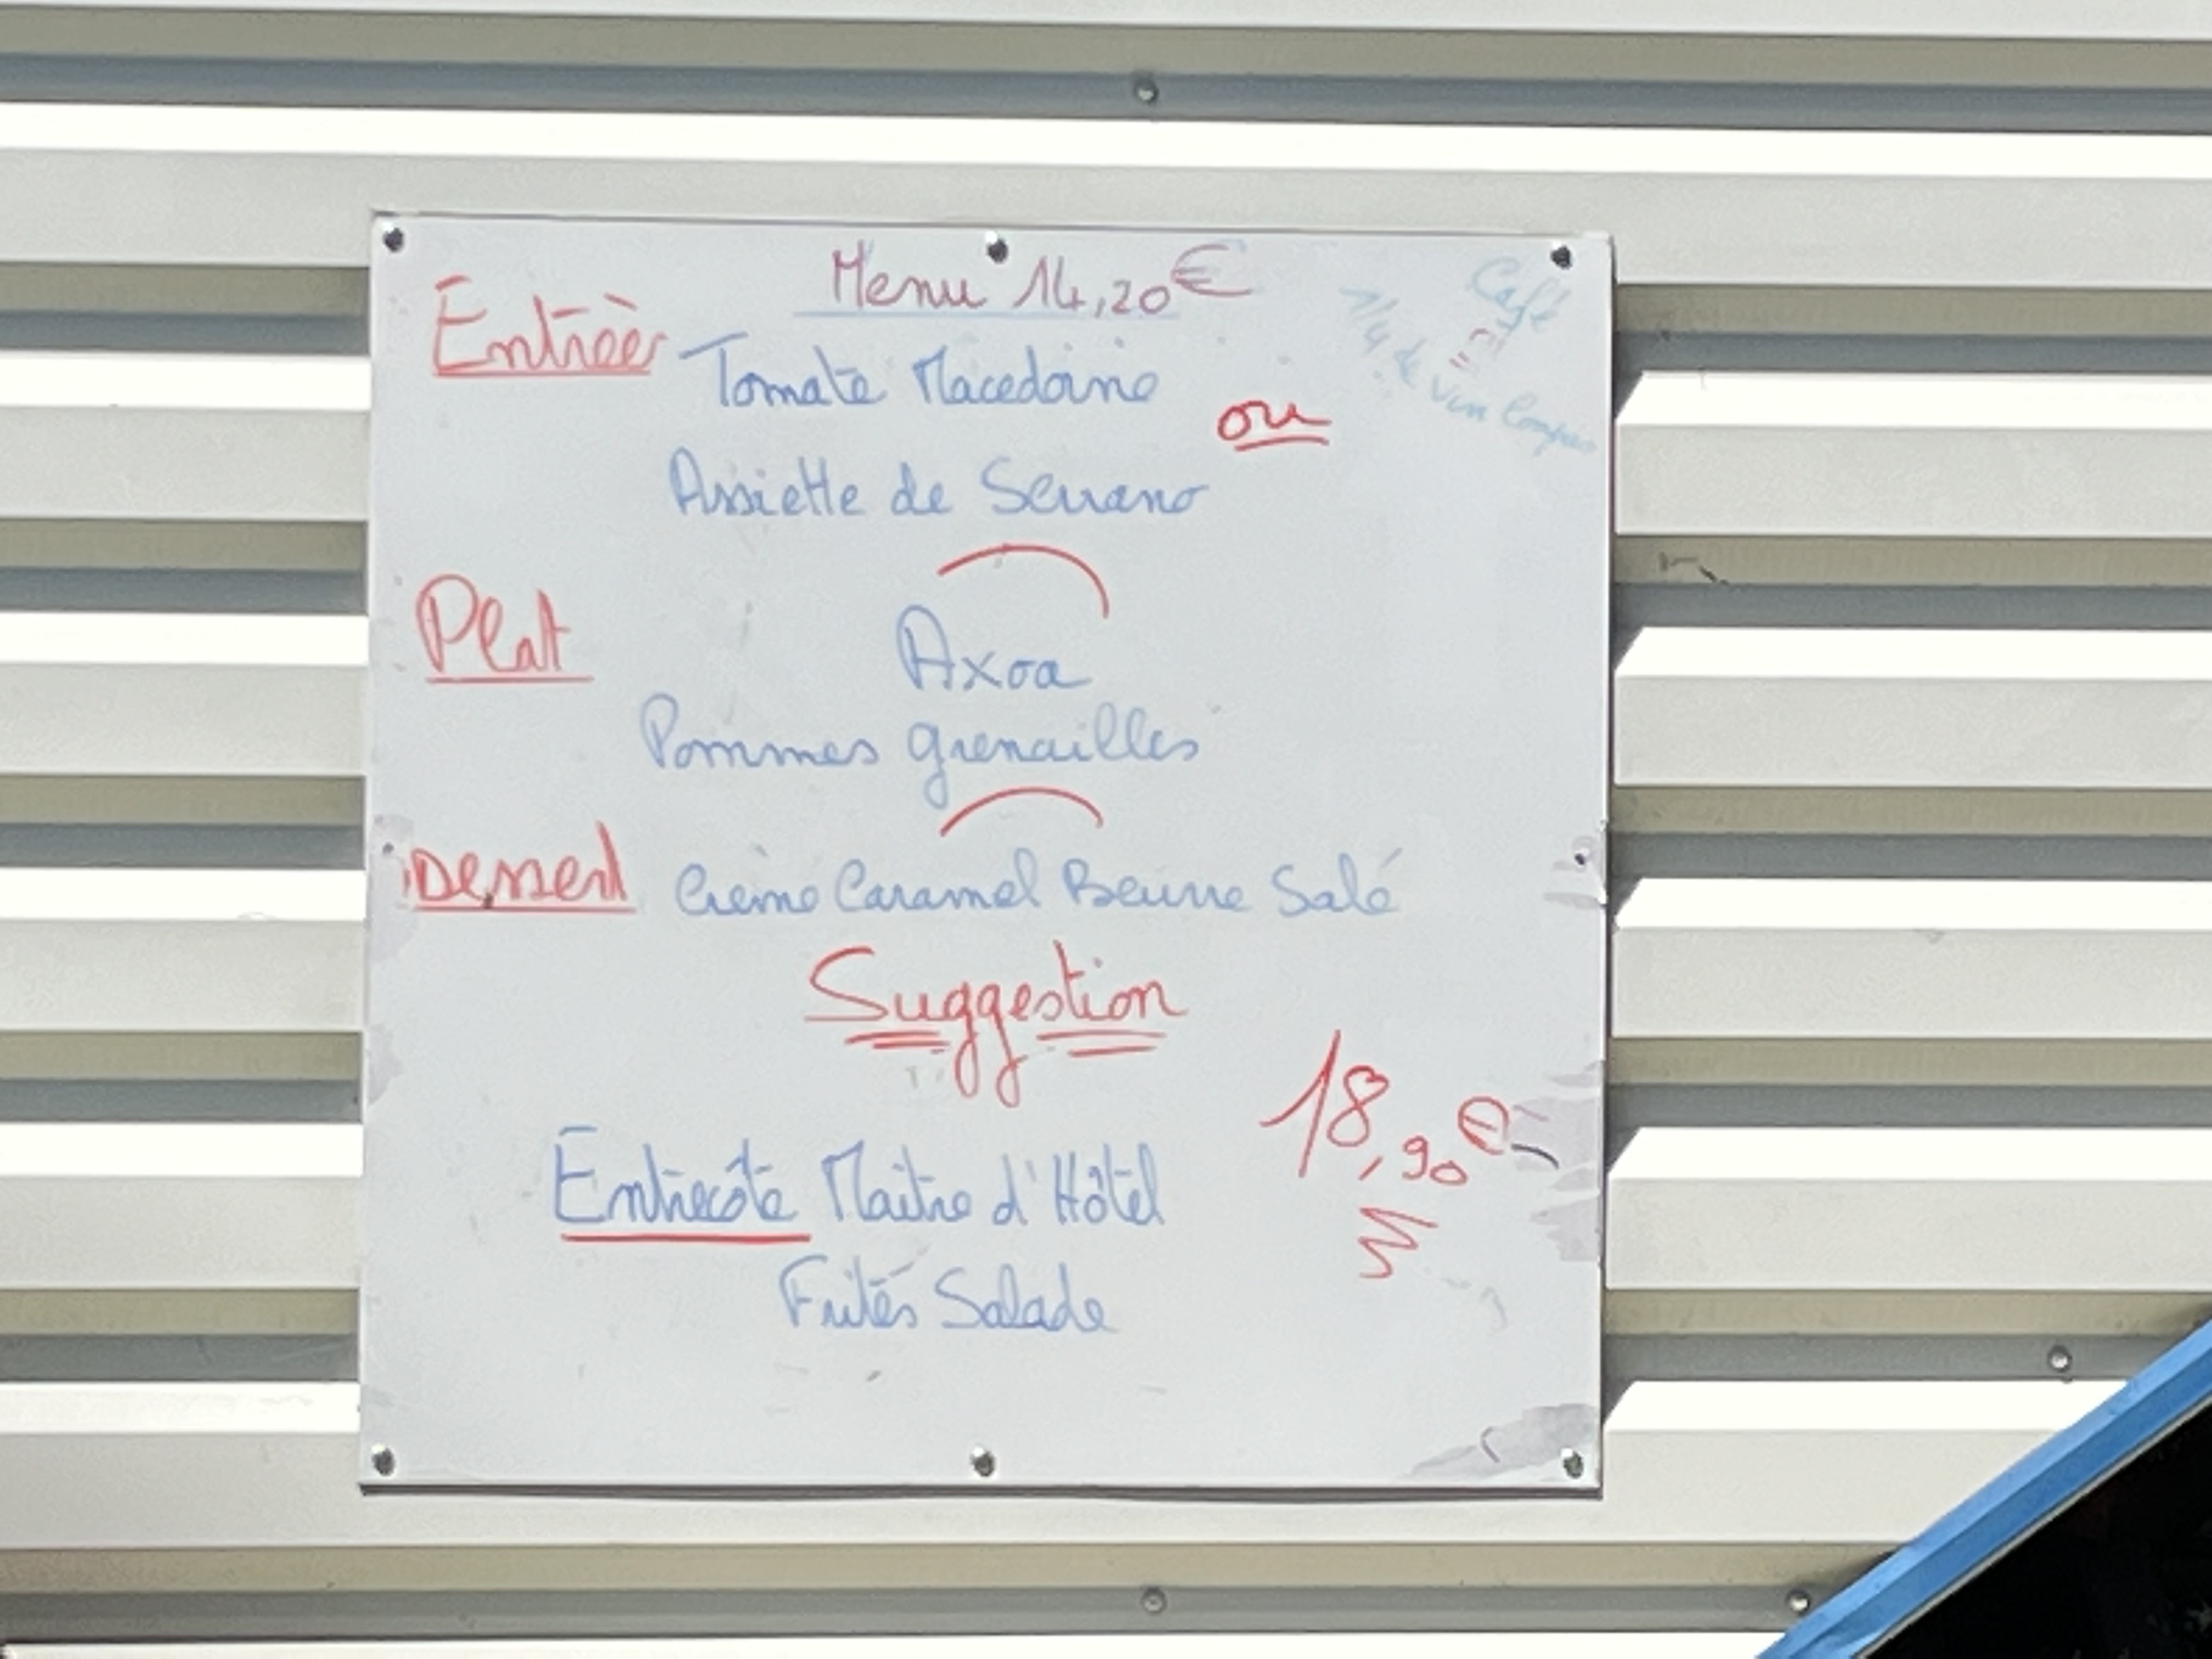 Menu 14,20€
Café
1/4 de vin Compris
Entrées
Tomate Macedoine
ou
Assiette de Serrano
Plat
Axoa
Pommes grenailles
Dessert
Crème Caramel Beurre Salé
Suggestion
18,90€
Entrecôte Maitre d'Hôtel
Frites Salade